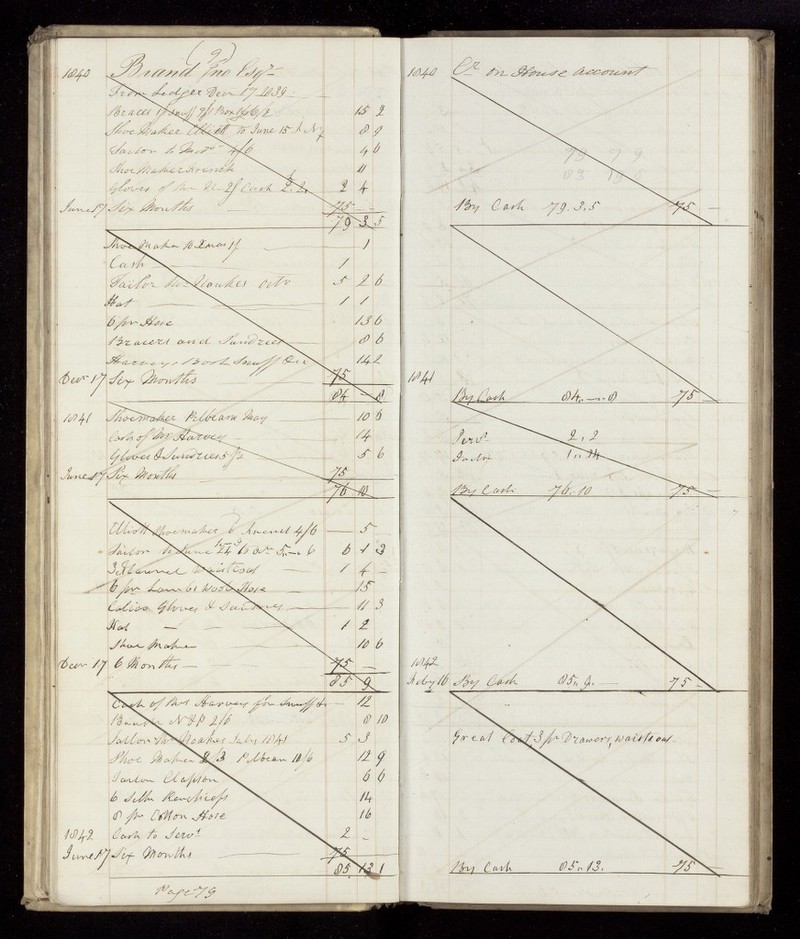 (9)
1840 Brand Jno Esqr
From Ledger Decr 17 1839
Braces 15 2
Shoe Maker Elliott to June 15 8 9
Tailor to 4/6 4 6
Shoe Maker French 11
Gloves of Cash 2.2. 2 4
June 17 Six Months 75
79 3 5
Shoe Maker to Xmas 1/ 1
Cash 1
Tailor Noakes Octr 5 2 6
Hat 1 1
6 pr Hose 13 6
Bracers and Sundries 8 6
Harveys Book Snuff &c 14 2
Decr 17 Six Months 75
84 – 8
1841 Shoemaker Pilbeam May 10 6
Cash of Mr Harvey 14
Gloves & Sundries 5/6 5 6
June 17 Six Months 75
76 10
Elliott Shoemaker 4/6 5
Tailor to June 24 6 1 3
3 Flannel Waistcoat 1 4 –
6 pr Lambs Wool Hose 15
Calico Gloves & Sundries 11 3
Hat 1 2
Shoe Maker 10 6
Decr 17 6 Months 75 –
85 9
Cash of Mrs Harvey for Snuff &c 12
2/6 8 10
Tailor Noakes July 1841 5 3
Shoe Maker Pilbeam 12 9
Tailor Clapson 6 6
6 Silk Kerchiefs 14
8 pr Cotton Hose 16
1842 Cash to Servt 2 –
June 17 Six Months 75
85. 13 1
Page 79
1840 Cr on House account
79 7 9
83 19 6
By Cash 79.3.5 75 –
1841
By Cash 84.–.8 75 –
Servt 2.2
Tailor 1.14
By Cash 76.10 75 –
1842
Feby 16 By Cash 85.9.– 75 –
Great Coat 3 pr Drawers, Waistcoat
By Cash 85.13. 75 –